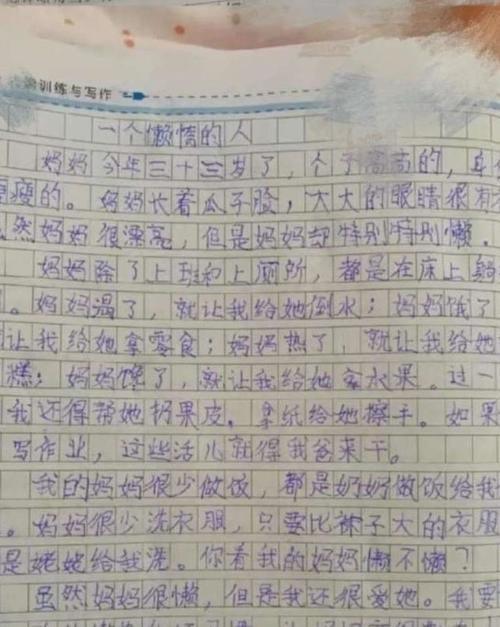 训练与写作
一个懒惰的人
妈妈今年三十三岁了，个子高高的，身
瘦瘦的。妈妈长着瓜子脸，大大的眼睛很有
然妈妈很漂亮，但是妈妈却特别特别懒。
妈妈除了上班和上厕所，都是在床上躺
。妈妈渴了，就让我给她倒水；妈妈饿了
让我给她拿零食；妈妈热了，就让我给她
糕；妈妈馋了，就让我给她拿水果。过一
我还得帮她扔果皮，拿纸给她擦手。如果
写作业，这些活儿就得我爸来干。
我的妈妈很少做饭，都是奶奶做饭给我
。妈妈很少洗衣服，只要比袜子大的衣服
是姥姥给我洗。你看我的妈妈懒不懒？
虽然妈妈很懒，但是我还很爱她。我要